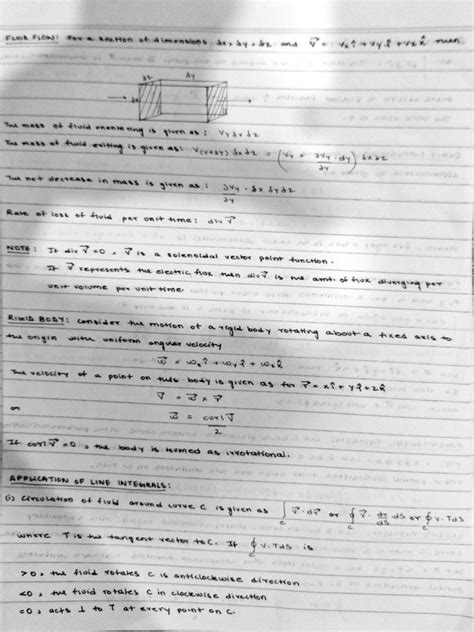 FLUID FLOW: For a section of dimensions δx, δy, δz and V⃗ = Vxî + Vyĵ + Vzk̂ then
δz δy
δx
The mass of fluid mentering is given as: Vy δx δz
The mass of fluid exiting is given as: V(y+δy) δx δz = (Vy + ∂Vy/∂y · dy) δxδz
The net decrease in mass is given as: ∂Vy/∂y · δx δy δz
Rate of loss of fluid per unit time: div V⃗
NOTE: If div V⃗ =0, V⃗ is a solenoidal vector point function.
If V⃗ represents the electric flux then div V⃗ is the amt. of flux diverging per
unit volume per unit time.
RIGID BODY: Consider the motion of a rigid body rotating about a fixed axis to
the origin with uniform angular velocity
ω⃗ = ωxî + ωyĵ + ωzk̂
The velocity of a point on this body is given as for r⃗ = xî + yĵ + zk̂
V⃗ = ω⃗ × r⃗
or ω⃗ = curl V⃗/2
If curl V⃗ =0, the body is termed as irrotational.
APPLICATION OF LINE INTEGRALS:
(i) Circulation of fluid around curve C is given as ∫C V⃗·dr⃗ or ∮C V⃗· dr/dS dS or ∮C V·TdS
where T is the tangent vector to C. If ∮C V·TdS is
>0, the fluid rotates C is anticlockwise direction
<0, the fluid rotates C in clockwise direction
=0, acts ⊥ to T at every point on C.